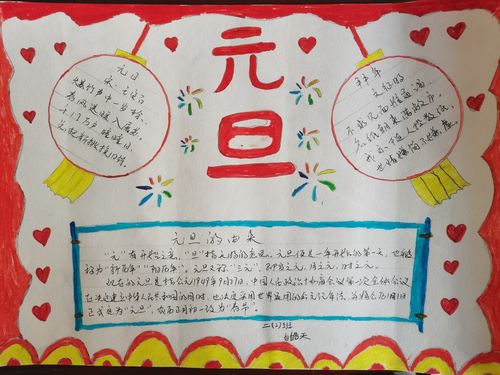 元旦
元日
宋·王安石
爆竹声中一岁除,
春风送暖入屠苏。
千门万户曈曈日,
总把新桃换旧符。
拜年
文征明
不求见面惟通谒
名纸朝来满敝庐。
我亦随人投数纸,
世情嫌简不嫌虚。
元旦的由来
"元"有开始之意,"旦"指天明的意思。元旦便是一年开始的第一天,也被
称为"新历年""阳历年"。元旦又称"三元",即岁之元,月之元,时之元。
现在的元旦是指公元1949年9月27日,中国人民政治协商会议第一次全体会议
在决定建立中华人民共和国的同时,也决定采用世界通用的公元纪年法,并将公历1月1日
正式定为"元旦",农历正月初一改为"春节"。
二(2)班
白皓天